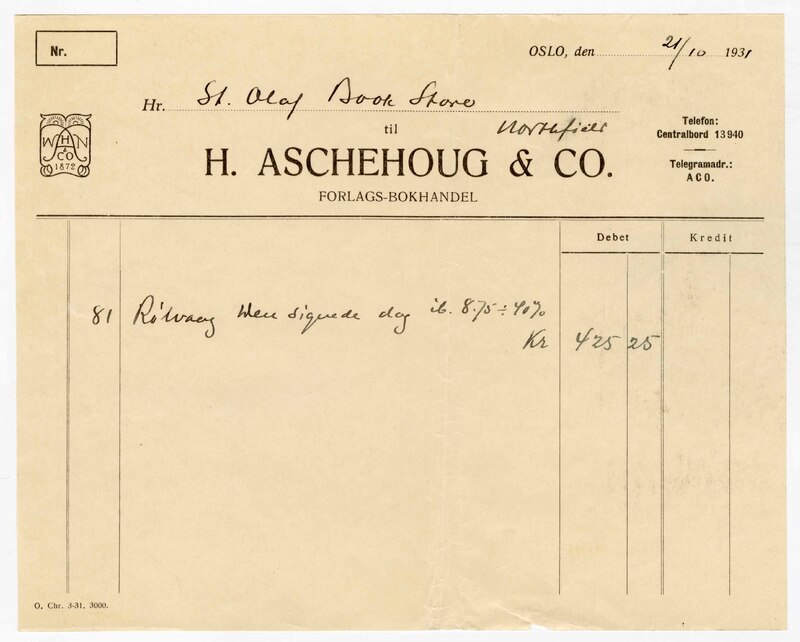 Nr.
OSLO, den 21/10 1931
Hr. St. Olaf Book Store
til Northfield
H. ASCHEHOUG & CO.
FORLAGS-BOKHANDEL
W H N
A
& CO
1872
Telefon:
Centralbord 13940
Telegramadr.:
ACO.
Debet Kredit
81 Rölvaag Den signede dag ib. 8.75 ÷ 40%
Kr 425 25
O. Chr. 3-31. 3000.